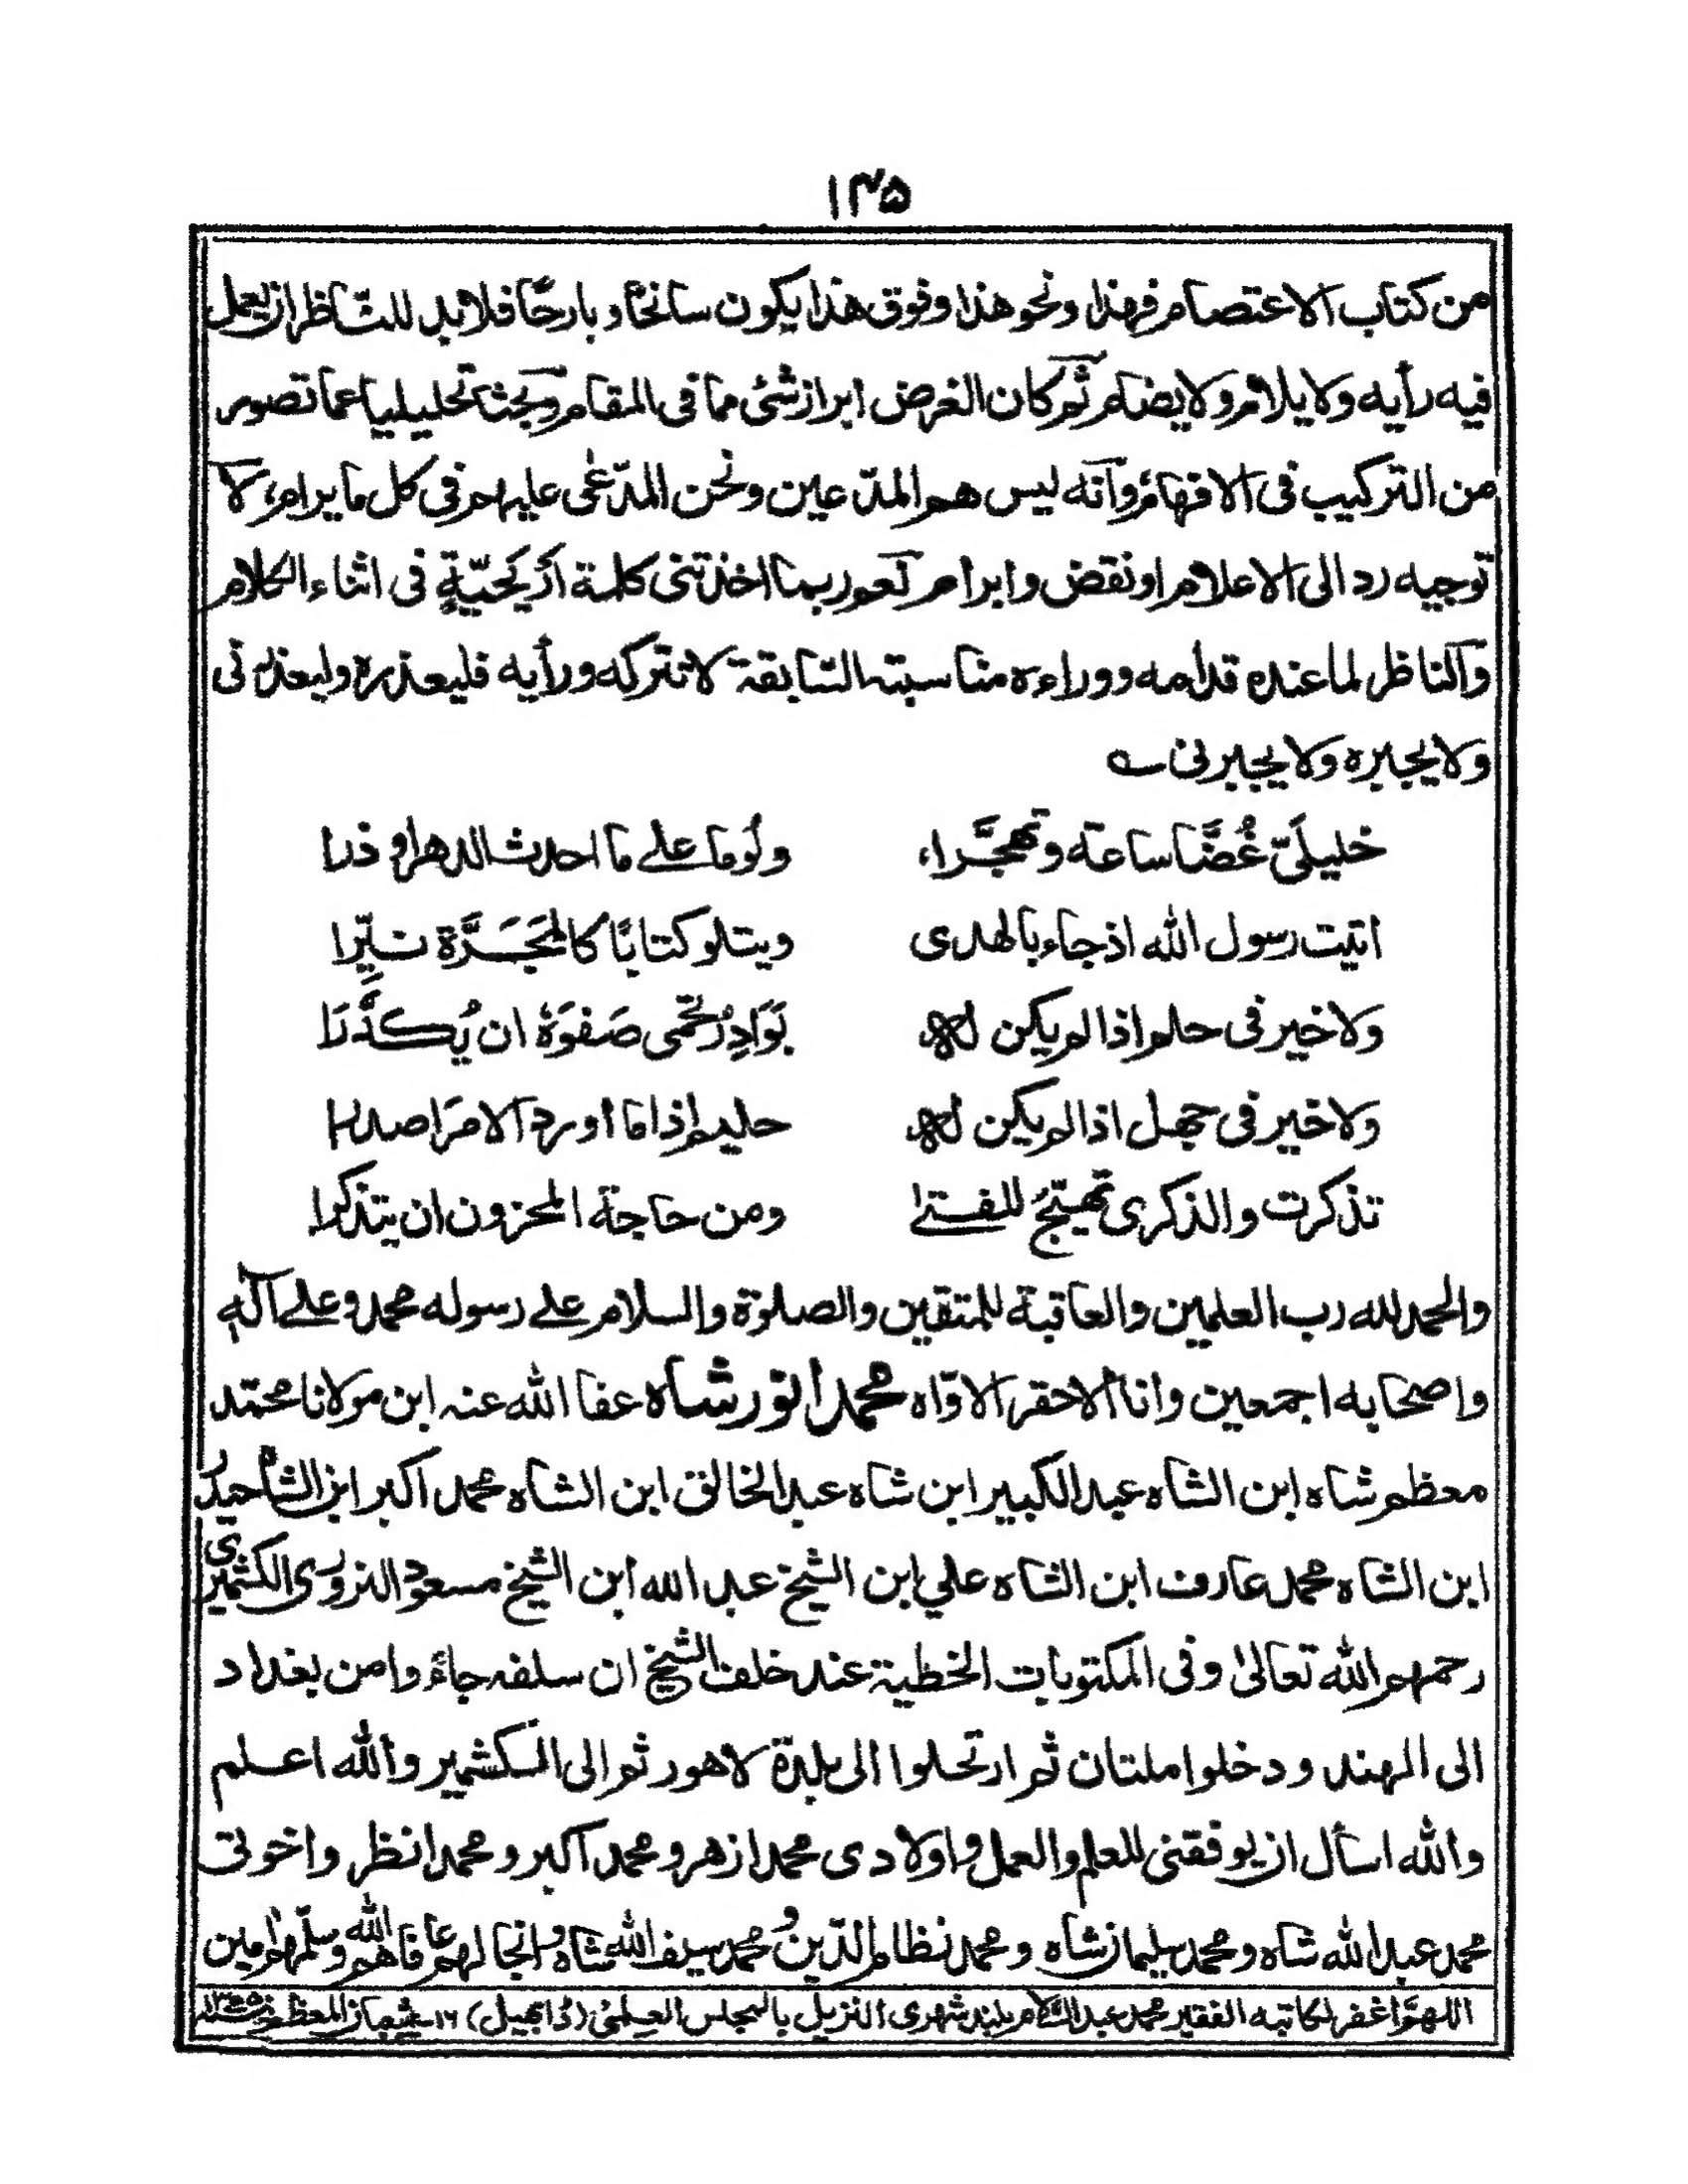 ۱۴۵
من كتاب الاعتصام فهذا ونحو هذا وفوق هذا يكون سانحًا وبارحًا فلابد للناظر ان يعمل
فيه رأيه ولا يلام ولا يضام ثم كان الغرض ابراز شئ مما فى المقام وبحثا تحليليا عما تصور
من التركيب فى الافهام وآنه ليس هم المدّعين ونحن المدّعٰى عليهم فى كل ما يرام، لا
توجيه رد الى الاعلام او نقض وابرام نعم ربما اخذتنى كلمة اَرْيَحيّةٍ فى اثناء الكلام
والناظر لما عنده قدامه ووراءه مناسبته السابقة لا تتركه ورأيه فليعذره وليعذرنى
ولا يجبره ولا يجبرنى ؎
خليلَىّ غُضَّا ساعة وتهجَّرا، ولُوما على ما احدث الدهر او ذرا
اتيت رسول الله اذ جاء بالهدى ويتلو كتابًا كالمَجَرَّة نيِّرا
ولا خير فى حلم اذا لم يكن له بَوَادِرُ تحمى صَفوَهٗ ان يُكدَّرَا
ولا خير فى جهل اذا لم يكن له حليم إذا ما أورد الامرَ اصدرا
تذكرت والذكرى تهيّجُ للفتى ومن حاجة المحزون ان يتذكرا
والحمد لله رب العلمين والعاقبة للمتقين والصلوة والسلام على رسوله محمد وعلى آله
واصحابه اجمعين وانا الاحقر الاوّاه محمد انور شاه عفا الله عنه ابن مولانا محمّد
معظم شاه ابن الشاه عبد الكبير ابن شاه عبد الخالق ابن الشاه محمد اكبر ابن الشاه حيدر
ابن الشاه محمد عارف ابن الشاه علي ابن الشيخ عبد الله ابن الشيخ مسعود النروري الكشميرى
رحمهم الله تعالىٰ وفى المكتوبات الخطية عند خلف الشيخ ان سلفه جاءوا من بغداد
الى الهند ودخلوا ملتان ثم ارتحلوا الى بلدة لاهور ثم الى الكشمير والله اعلم
والله اسأل ان يوفقنى للعلم والعمل واولادى محمد ازهر ومحمد اكبر ومحمد انظر واخوتى
محمد عبد الله شاه ومحمد سليمان شاه ومحمد نظام الدّين ومحمد سيف الله شاه وانجالهم عافاهم الله وسلّمهم اٰمين
اللهمَّ اغفر لكاتبه الفقير محمد عبد السّلام بلند شهرى النزيل بالمجلس العلمى (ڈابهيل) ١٦ شعبان المعظم